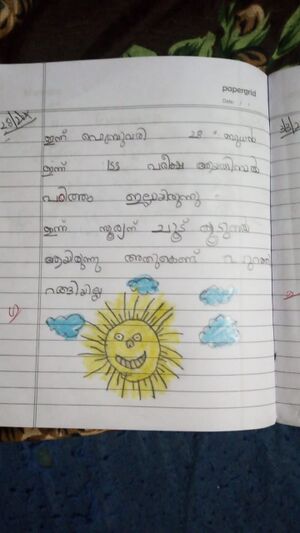 papergrid
Date: / /
ഇന്ന് ഫെബ്രുവരി 28 ബുധൻ
ഇന്ന് lss പരീക്ഷ ആയതിനാൽ
പഠിത്തം ഇല്ലായിരുന്നു
ഇന്ന് സൂര്യന് ചൂട് കൂടുതലു
ആയിരുന്നു അതുകൊണ്ട് പുറത്തി
റങ്ങിയില്ല